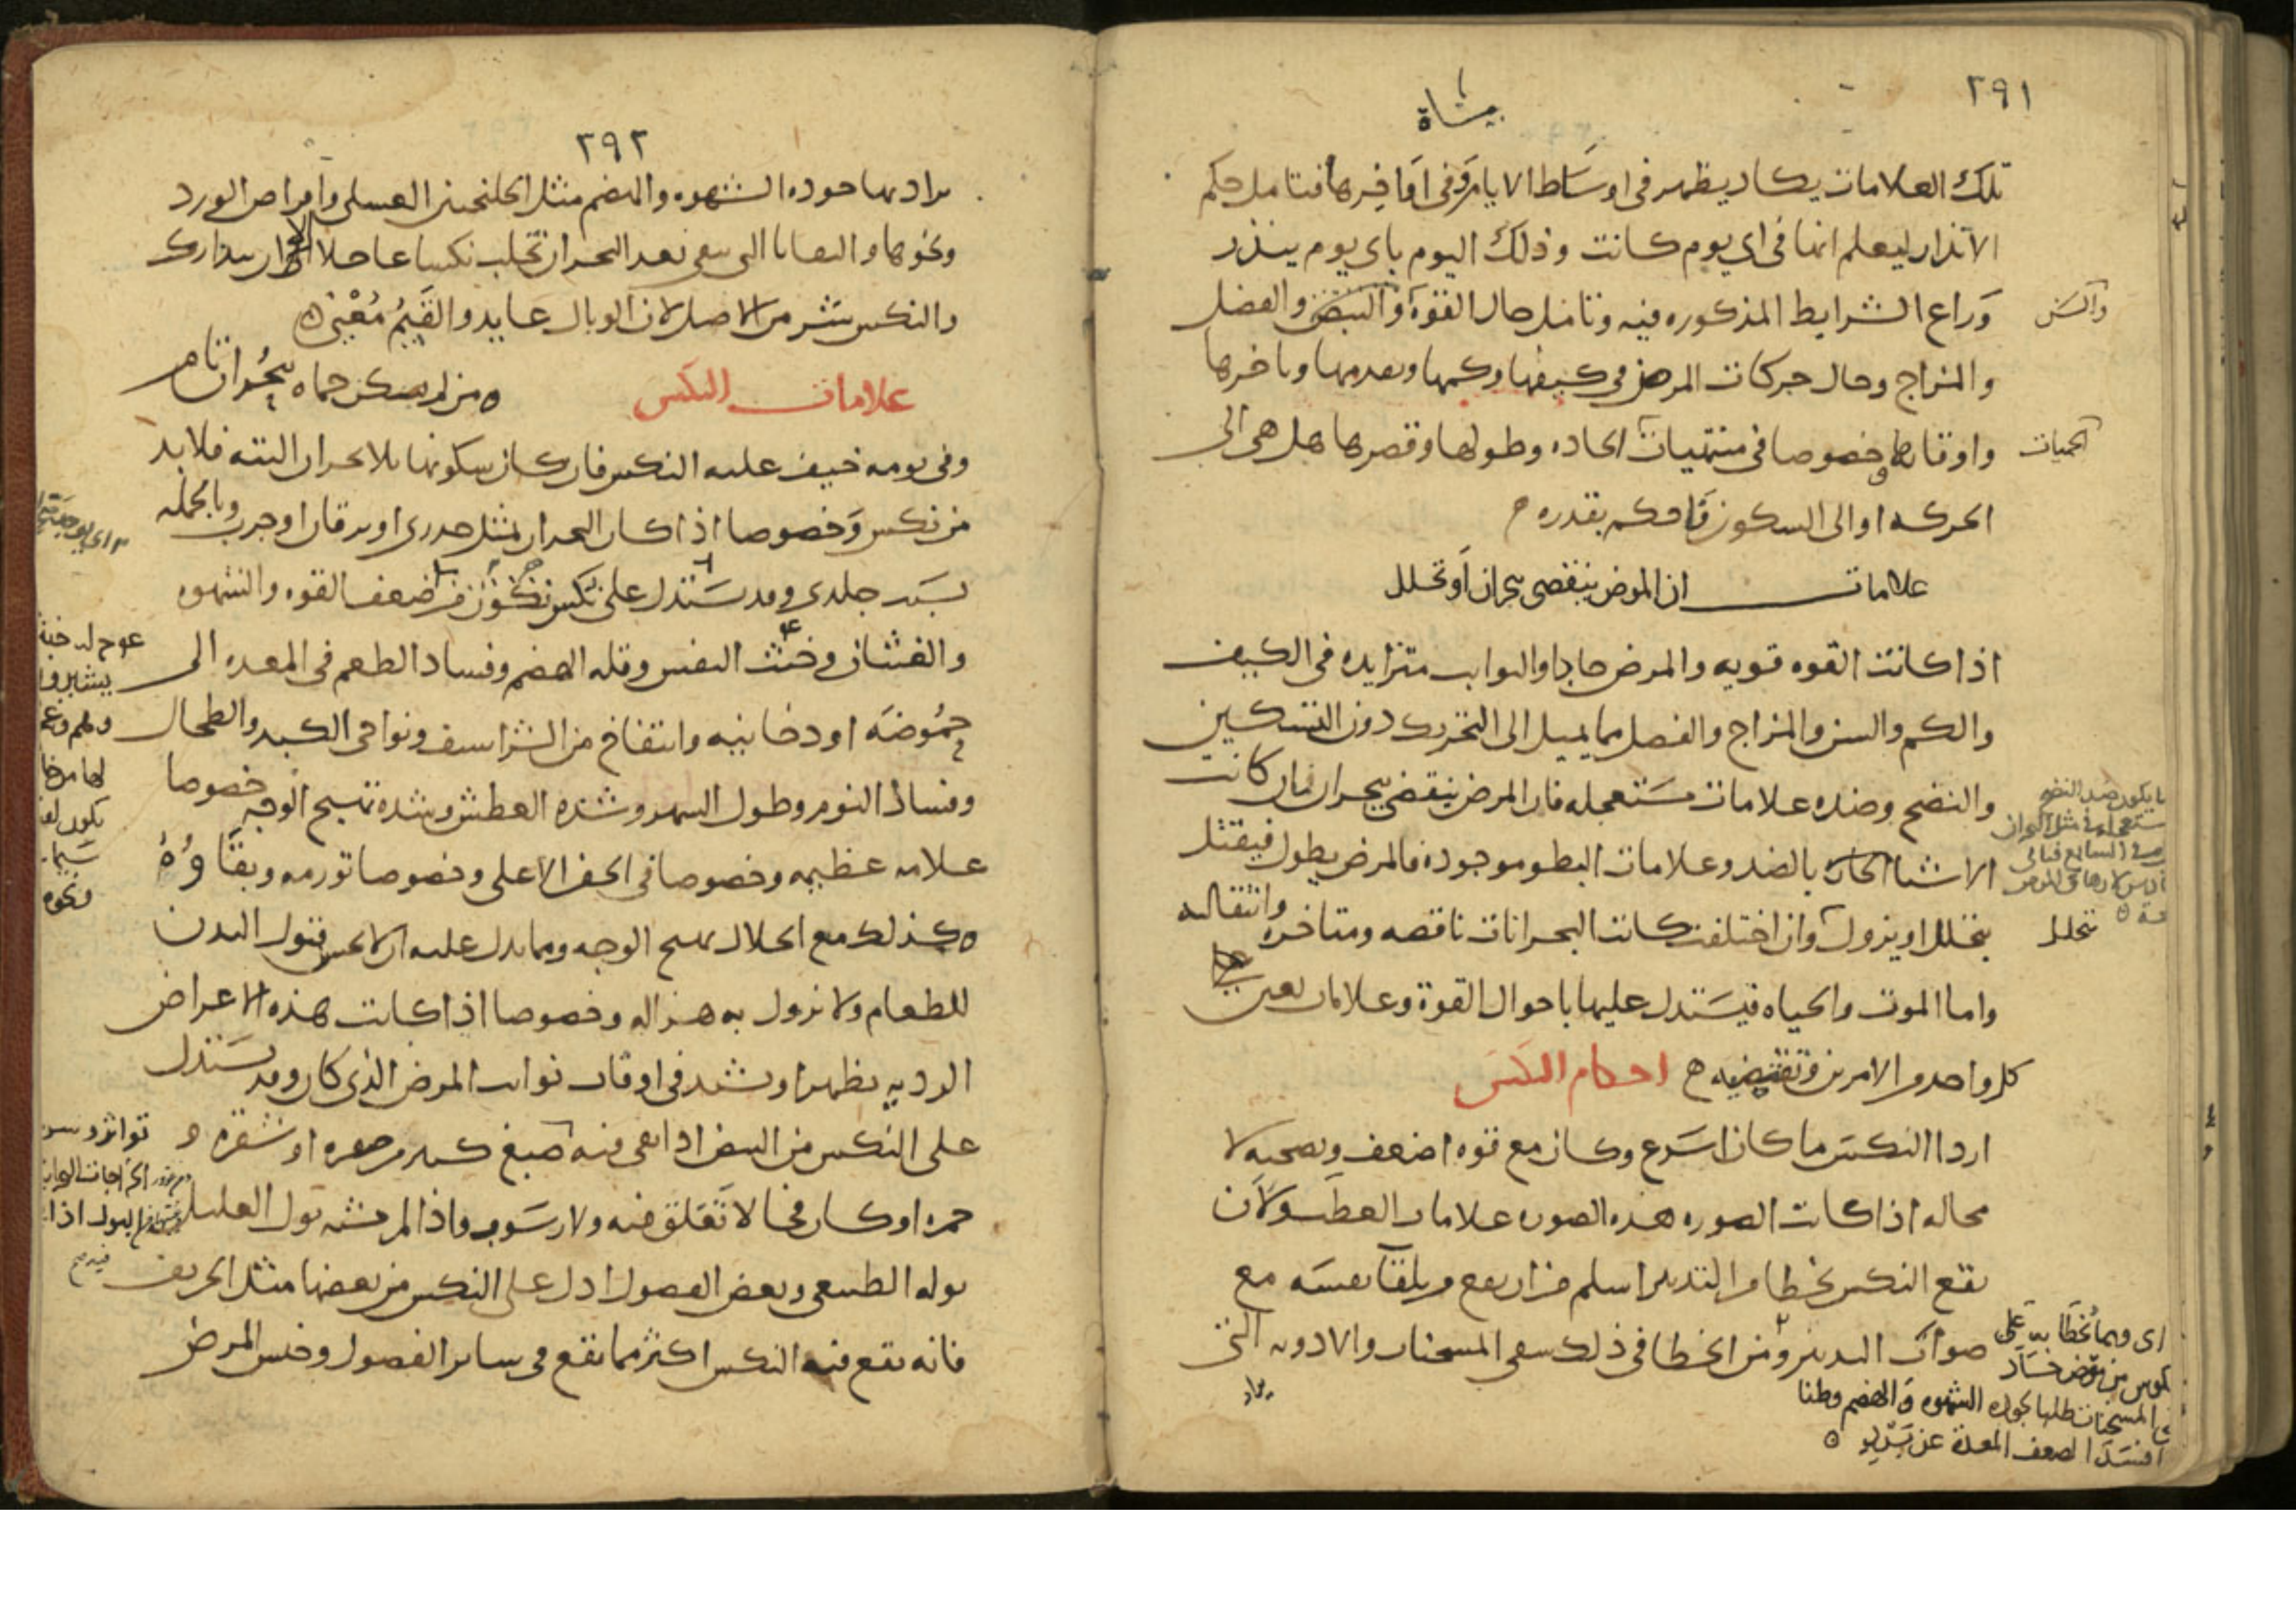 ٢٩١
تلك العلامات يكاد يظهر فى اوساط الايام وفى اواخرها فتامل حكم
الانذار ليعلم انها فى اى يوم كانت وذلك اليوم باى يوم ينذر
وراع الشرايط المذكوره فيه وتامل حال القوة والنبض والفصل
والسن
والمزاج وحال حركات المرض فى كيفها وكمها وتقدمها وتاخرها
واوقاتها وخصوصا فى منتهيات الحاده وطولها وقصرها هل هى الى
الحميات
الحركه او الى السكون فاحكم بقدره
علامات ان المرض ينقضى ببحران او تحلل
اذا كانت القوه قويه والمرض حادا والنوايب متزايده فى الكيف
والكم والسن والمزاج والفصل مما يميل الى التحريك دون التسكين
والنضج وضده علامات مستعجله فان المرض ينقضى ببحران فان كانت
الاشيا الحاره بالضد وعلامات البطو موجوده فالمرض يطول فيقتل
يتحلل او يزول وان اختلفت كانت البحرانات ناقصه ومتاخره وانتقاليه
تحلل
واما الموت والحياه فيستدل عليها باحوال القوة وعلامات تعين
كل واحد من الامرين وتقتضيه احكام النكس
اردا النكس ما كان اسرع وكان مع قوه اضعف ويصحبه لا
محاله اذا كانت الصوره هذه الصوره علامات العطب ولان
يقع النكس بخطا من التدبير اسلم من ان يقع من تلقا نفسه مع
صواب التدبير ومن الخطا فى ذلك سقى المسخنات والادويه التى
المسخنات طلبا لجوده الشهوه والهضم
يراد
٢٩٢
يراد بها جوده الشهوه والهضم مثل الجلنجبين العسلى واقراص الورد
ونحوها والبقايا التى تبقى بعد البحران تجلب نكسا عاجلا الا ان يتدارك
والنكس شر من الاصل لان الوبال عايد والقيم معيى
علامات النكس من لم يسكن حماه ببحران تام
وفى يومه خيف عليه النكس فان كان سكونها بلا بحران البته فلا بد
من نكس وخصوصا اذا كان البحران بمثل جدرى او يرقان او جرب وبالجمله
بسبب جلدى وقد يستدل على نكس يكون من ضعف القوه والشهوه
والغثيان وخبث النفس وقله الهضم وفساد الطعم فى المعده الى
حموضه او دخانيه وانتفاخ من الشراسف ونواحى الكبد والطحال
وفساد النوم وطول السهر وشده العطش وشده تهبج الوجه خصوصا
علامه عظيمه وخصوصا فى الجفن الاعلى وخصوصا تورمه وبقاوه
كذلك مع انحلال تهبج الوجه ومما يدل عليه ان لا يحس قبول البدن
للطعام ولا يزول به هزاله وخصوصا اذا كانت هذه الاعراض
الرديه تظهر او تشتد فى اوقات نوايب المرض الذى كان وقد يستدل
على النكس من النبض اذا بقى فيه صبغ كثير من صفره او شقره و
حمره او كان فجا لا تعلق فيه ولا رسوب واذا لم يشبه بول العليل
بوله الطبيعى وبعض الفصول ادل على النكس من بعضها مثل الخريف
فانه يقع فيه النكس اكثر مما يقع فى ساير الفصول وجنس المرض